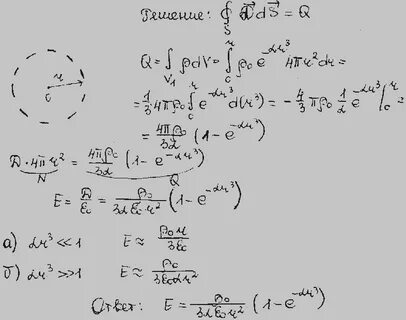 Решение: ∮_S D⃗ dS⃗ = Q
Q = ∫_V₁ ρdV = ∫_0^r ρ₀ e^(-αr³) 4πr² dr =
= 1/3 4πρ₀ ∫_0^r e^(-αr³) d(r³) = - 4/3 πρ₀ 1/α e^(-αr³) |_0^r =
= 4πρ₀/3α (1 - e^(-αr³))
D · 4πr² = 4πρ₀/3α (1 - e^(-αr³))
N Q
E = D/ε₀ = ρ₀/3αε₀r² (1 - e^(-αr³))
а) αr³ << 1 E ≈ ρ₀r/3ε₀
б) αr³ >> 1 E ≈ ρ₀/3ε₀αr²
Ответ: E = ρ₀/3αε₀r² (1 - e^(-αr³))
r
0